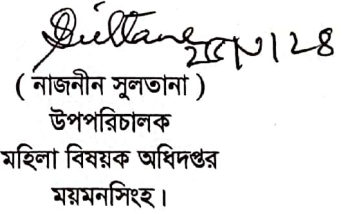 Sultana
( নাজনীন সুলতানা )
উপপরিচালক
মহিলা বিষয়ক অধিদপ্তর
ময়মনসিংহ।